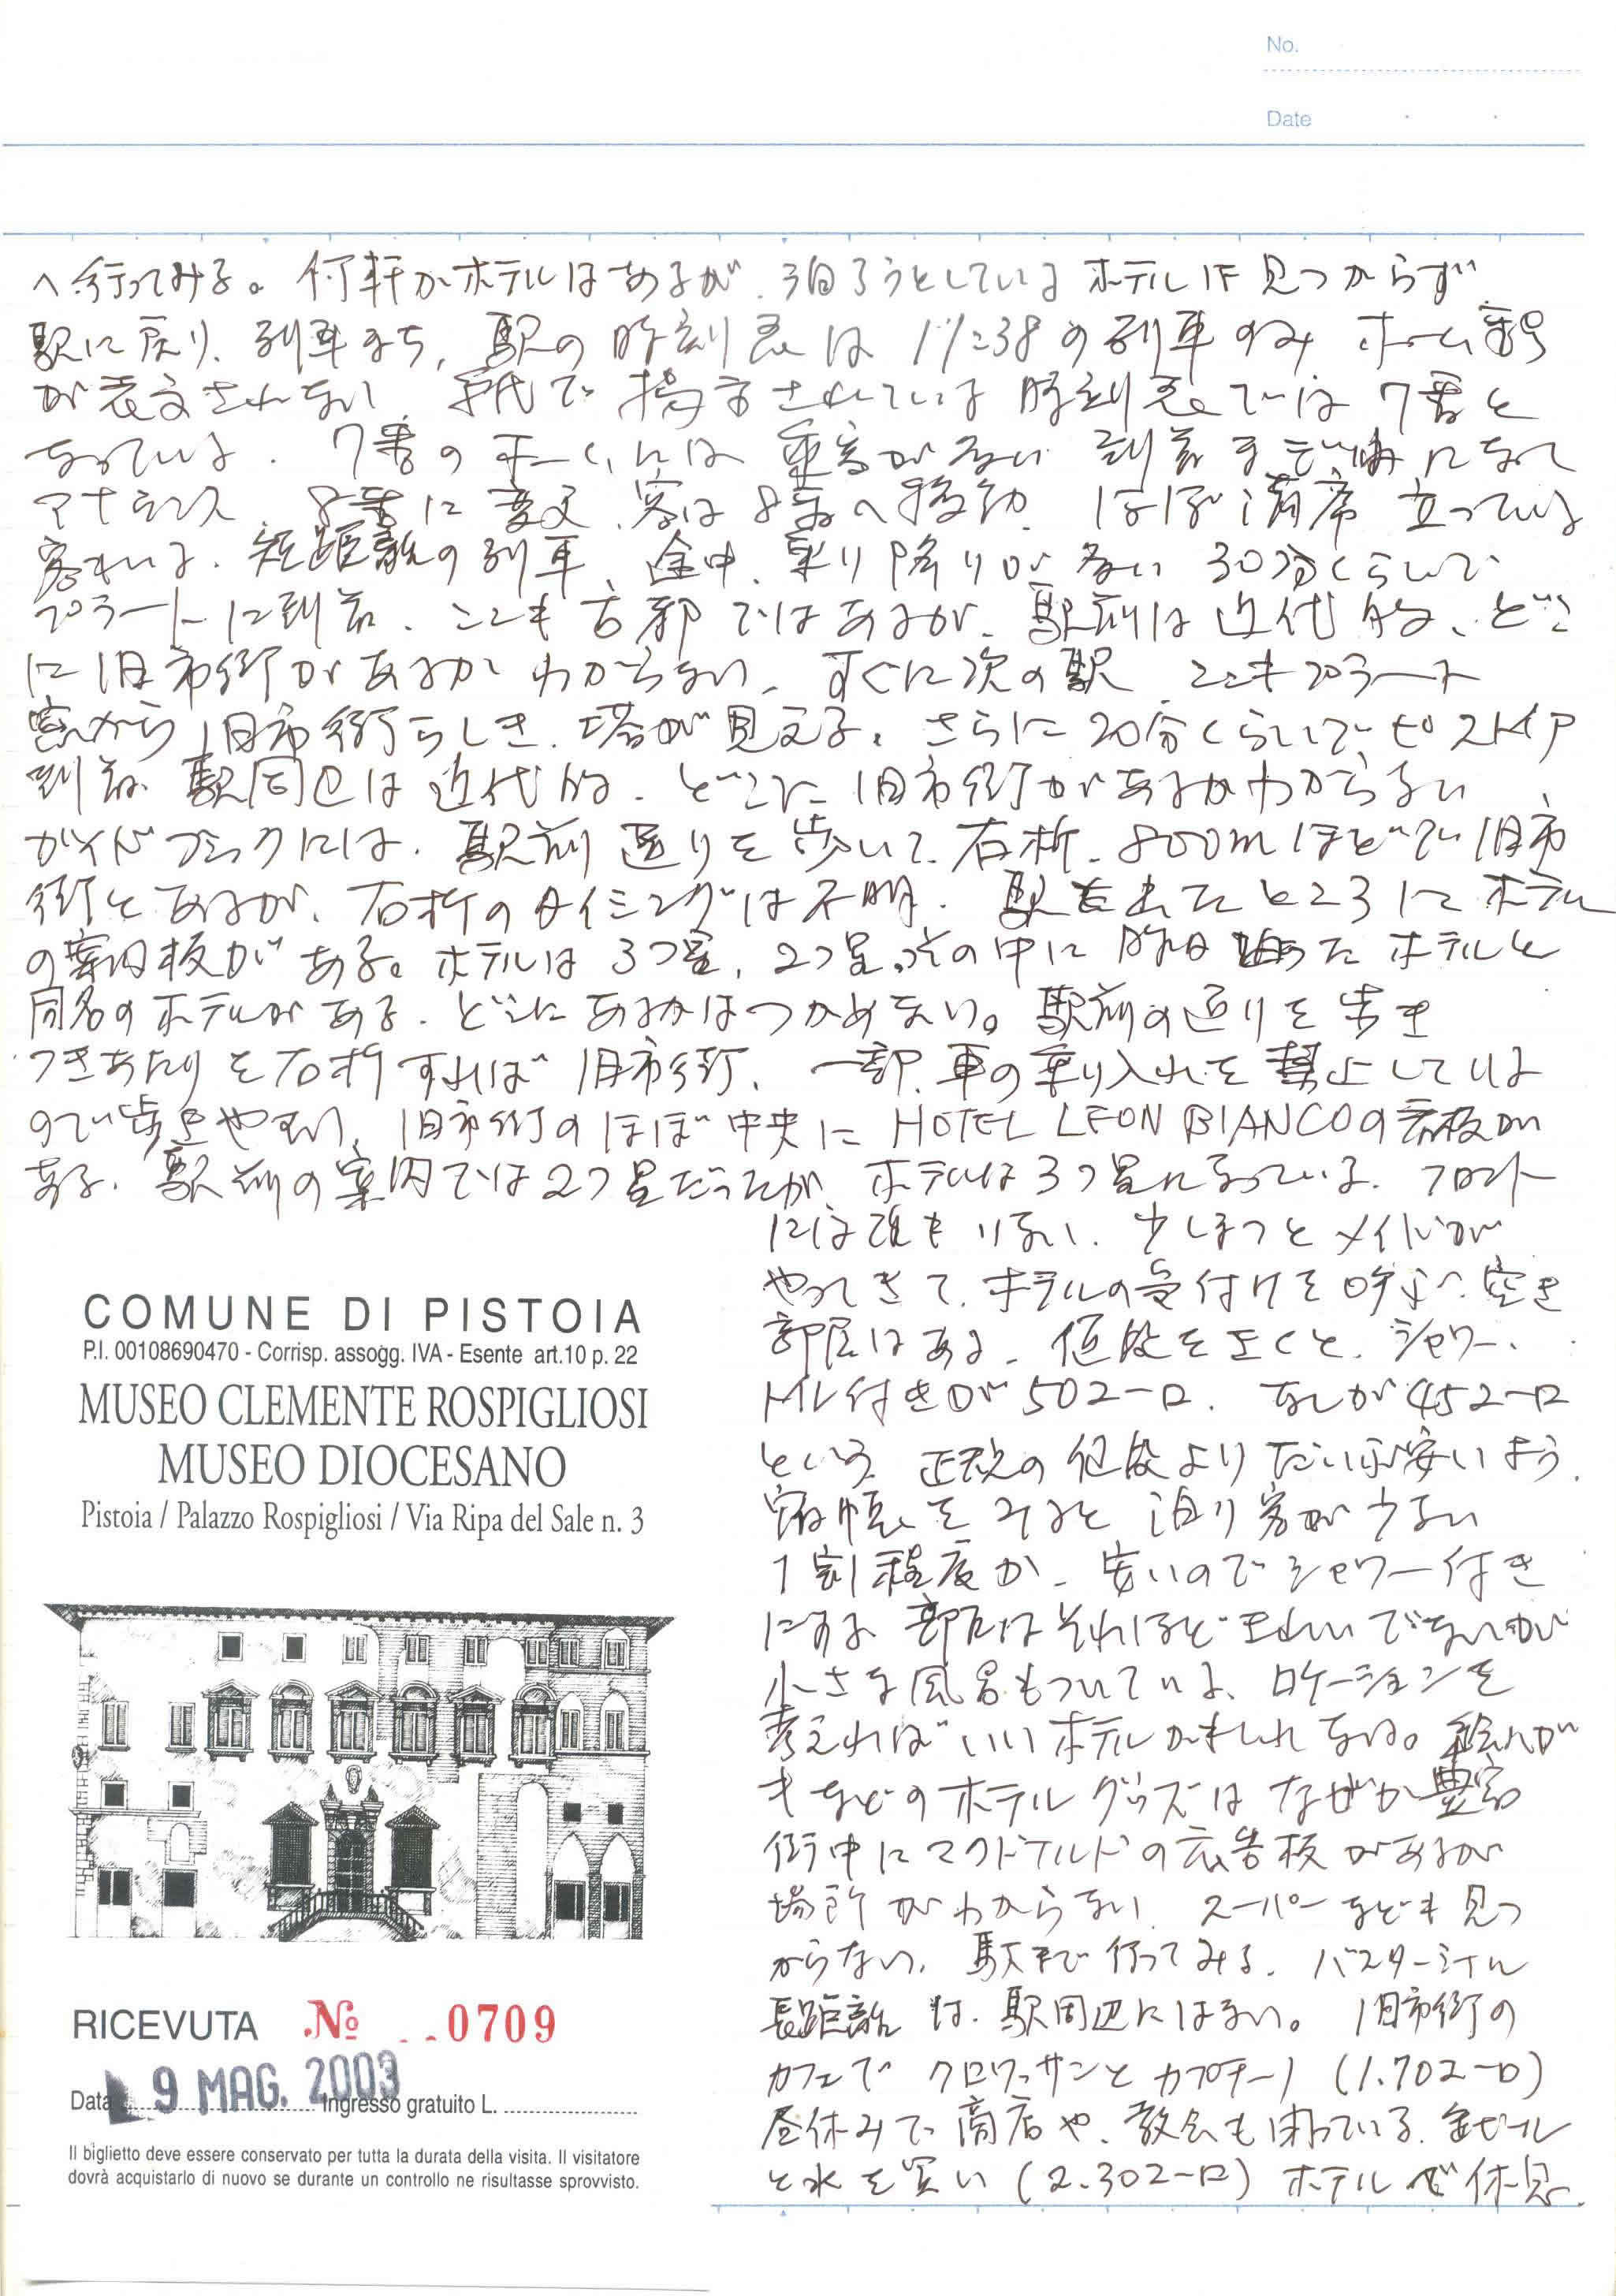 No.
Date
へ行ってみる。何軒かホテルはあるが、泊ろうとしているホテルは見つからず
駅に戻り、列車まち、駅の時刻表は11:38の列車のみホーム番号
が表示されない、掲示されている時刻表では7番と
なっている。7番のホームには乗客が多い 到着まぎわになって
アナウンス 8番に変更、客は8番へ移動、ほぼ満席 立っている
客もいる。短距離の列車、途中、乗り降りが多い 30分くらいで
プラートに到着、ここも古都ではあるが、駅前は近代的、どこ
に旧市街があるかわからない、すぐに次の駅 ここもプラート
窓から旧市街らしき、塔が見える。さらに20分くらいで、ピストイア
到着 駅周辺は近代的、どこに旧市街があるかわからない、
ガイドブックには、駅前通りを歩いて、右折、800mほどで旧市
街とあるが、右折のタイミングは不明、駅を出たところにホテル
の案内板がある。ホテルは3つ星、2つ星、その中に昨日泊ったホテルと
同名のホテルがある、どこにあるかはつかめない。駅前の通りを歩き
つきあたりを右折すれば旧市街、一部、車の乗り入れを禁止している
ので歩きやすい、旧市街のほぼ中央にHOTEL LEON BIANCOの看板が
ある、駅前の案内では2つ星だったが、ホテルは3つ星になっている、フロント
には誰もいない、少しまつとメイドが
やってきて、ホテルの受付けを呼ぶ、空き
部屋はある、値段をきくと、シャワー、
トイレ付きが50ユーロ、なしが45ユーロ
という、正規の値段よりだいぶ安いよう、
宿帳をみると泊り客が少ない
1割程度か、安いのでシャワー付き
にする 部屋はそれほどきれいでないが
小さな風呂もついている、ロケーションを
考えればいいホテルかもしれない。絵ハガ
キなどのホテルグッズはなぜか豊富
街中にマクドナルドの広告板があるが
場所がわからない、スーパーなども見つ
からない、駅まで行ってみる、バスターミナル
長距離は、駅周辺にはない。旧市街の
カフェでクロワッサンとカプチーノ(1.70ユーロ)
昼休みで商店や、教会も閉っている、缶ビール
と水を買い(2.30ユーロ)ホテルで休息、
COMUNE DI PISTOIA
P.I. 00108690470 - Corrisp. assogg. IVA - Esente art.10 p. 22
MUSEO CLEMENTE ROSPIGLIOSI
MUSEO DIOCESANO
Pistoia / Palazzo Rospigliosi / Via Ripa del Sale n. 3
RICEVUTA № 0709
Data 9 MAG. 2003 Ingresso gratuito L.
Il biglietto deve essere conservato per tutta la durata della visita. Il visitatore
dovrà acquistarlo di nuovo se durante un controllo ne risultasse sprovvisto.